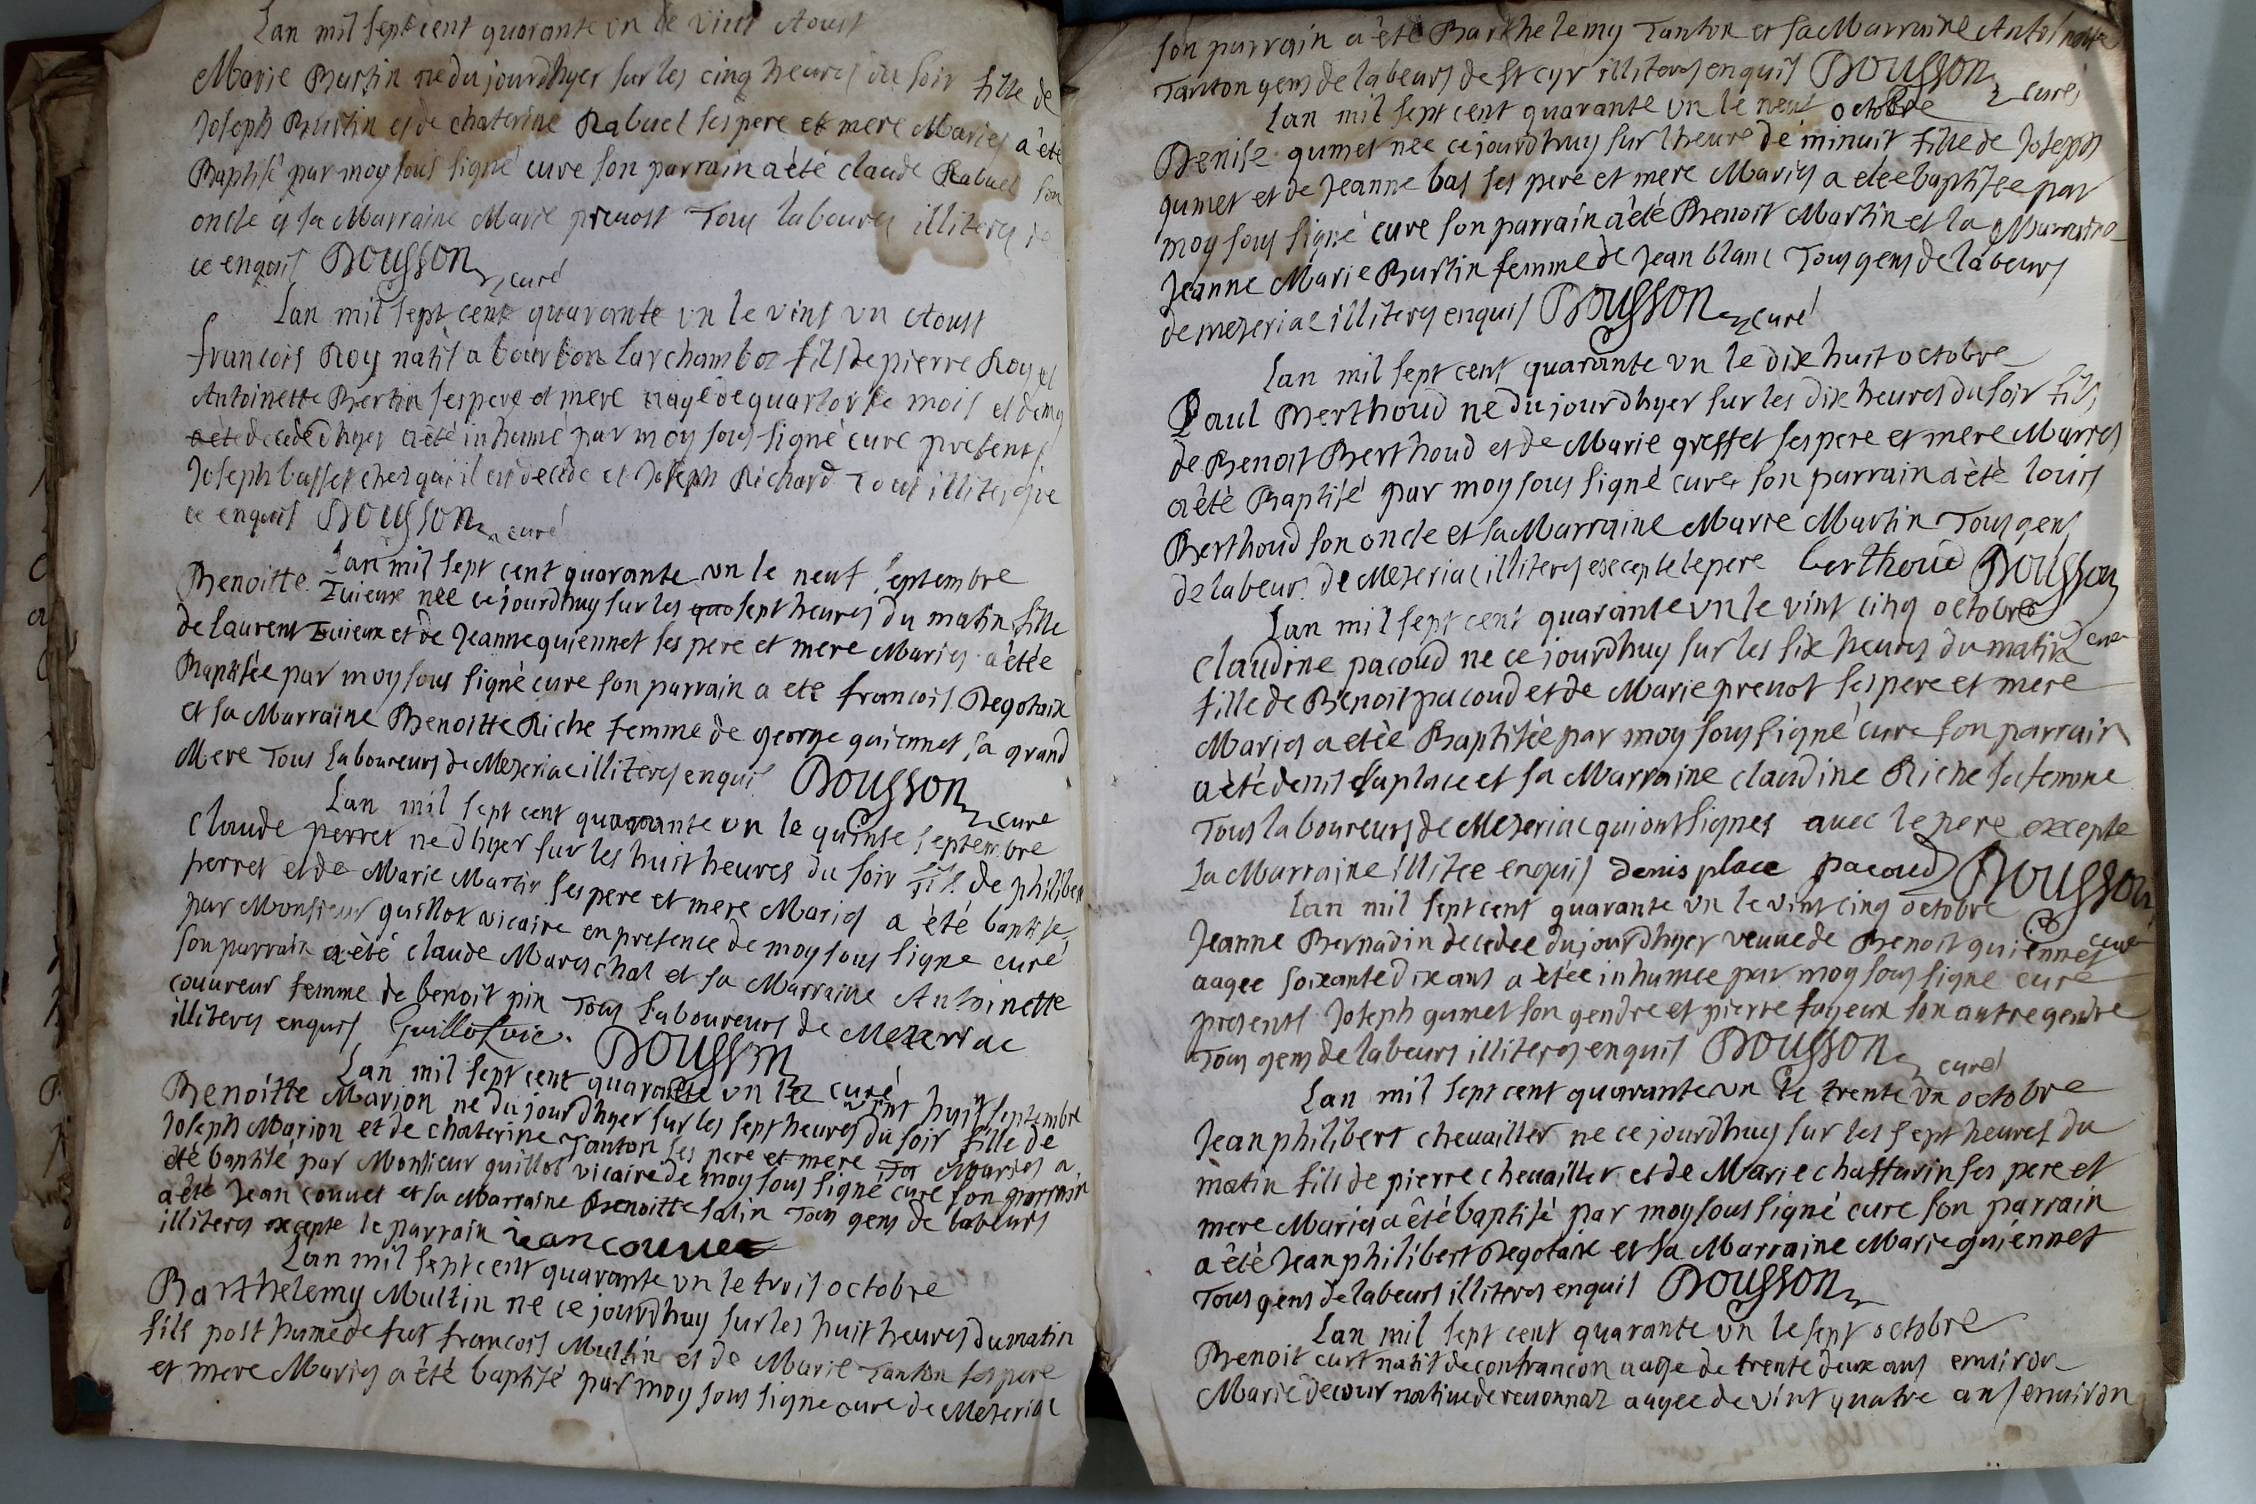 Lan mil sept cent quarante vn le vint Aoust
Marie Burtin ne du jourdhyer sur les cinq heures du soir fille de
Joseph Burtin et de chaterine Rabuel ses pere et mere Maries a ète
Baptisé par moy sous signé cure son parrain a été claude Rabuel son
oncle et sa Marraine Marie preuost Tous laboures illiteres de
ce enquis Bousson curé
Lan mil sept cent quarante vn le vint vn Aoust
francois Roy natif a bourbon Larchambot fils de pierre Roy et
Antoinette Bertin ses pere et mere aagé de quartorse mois et demy
decédé dhyer a été inhumé par moy sous signé cure presents
Joseph basset chez qui il est decede et Joseph Richard Tous illiteres de
ce enquis Bousson curé
Lan mil sept cent quarante vn le neuf septembre
Benoitte Tuieux nee ce jourdhuy sur les quo sept heures du matin fille
de laurent Tuieux et de Jeanne quiennet ses pere et mere Maries a étée
Baptisée par moy sous signé cure son parrain a ete francois Degotaix
et sa Marraine Benoitte Riche femme de george quiennet sa grand
Mere Tous Laboureurs de Mezeriac illiteres enquis Bousson cure
Lan mil sept cent quarante vn le quinze septembre
claude perret ne dhyer sur les huit heures du soir fils de philibert
perret et de Marie Martin ses pere et mere Maries a été baptisé
par Monsieur guillot vicaire en presence de moy sous signe curé
son parrain a été claude Mareschal et sa Marraine Antoinette
couureur femme de benoit pin Tous Laboureurs de Mezeriac
illiteres enquis Guillot vic. Bousson curé
Lan mil sept cent quarante vn le vint huit septembre
Benoitte Marion ne du jourdhyer sur les sept heures du soir fille de
Joseph Marion et de chaterine Tanton ses pere et mere Maries a
été baptisé par Monsieur guillot vicaire de moy sous signé cure son parrain
a été Jean couuet et sa Marraine Benoitte salin Tous gens de labeurs
illiteres excepte le parrain iean couuet
Lan mil sept cent quarante vn le trois octobre
Barthelemy Multin ne ce jourdhuy sur les huit heures du matin
fils post hume de fut francois Multin et de Marie Tanton ses pere
et mere Maries a été baptisé par moy sous signe cure de Mezeriac
son parrain a été Barthelemy Tanton et sa Marraine Antoinette
Tanton gens de labeurs de st cyr illiteres enquis Bousson curé
Lan mil sept cent quarante vn le neuf octobre
Denise gumet nee ce jourdhuy sur lheure de minuit fille de Joseph
gumet et de Jeanne bas ses pere et mere Maries a etée baptisée par
moy sous signé cure son parrain a été Benoit Martin et la Marraine
Jeanne Marie Burtin femme de Jean blanc Tous gens de labeurs
de mezeriac illiteres enquis Bousson curé
Lan mil sept cent quarante vn le dix huit octobre
Paul Berthoud ne du jourdhyer sur les dix heures du soir fils
de Benoit Berthoud et de Marie greffet ses pere et mere Maries
a été Baptisé par moy sous signé cure son parrain a été louis
Berthoud son oncle et sa Marraine Marie Martin Tous gens
de labeurs de Mezeriac illiteres excepté le pere berthoud Bousson
cure
Lan mil sept cent quarante vn le vint cinq octobre
claudine pacoud ne ce jourdhuy sur les six heures du matin
fille de Benoit pacoud et de Marie prenot ses pere et mere
Maries a etée Baptisée par moy sous signé cure son parrain
a été denis Laplace et sa Marraine claudine Riche sa femme
Tous laboureurs de Mezeriac qui ont signes auec le pere excepte
La Marraine illitee enquis denis place pacoud Bousson
curé
Lan mil sept cent quarante vn le vint cinq octobre
Jeanne Bernadin decedee du jourdhyer veuue de Benoit quiennet
aagee soixante dix ans a étée inhumee par moy sous signe curé
presents Joseph gumet son gendre et pierre fayeux son autre gendre
Tous gens de labeurs illiteres enquis Bousson curé
Lan mil sept cent quarante vn le trente vn octobre
Jean philibert cheuailler ne ce jourdhuy sur les sept heures du
matin fils de pierre cheuailler et de Marie chaffurin ses pere et
mere Maries a été baptisé par moy sous signé cure son parrain
a été Jean philibert Degotaix et sa Marraine Marie quiennet
Tous gens de labeurs illiteres enquis Bousson
Lan mil sept cent quarante vn le sept octobre
Benoit curt natif de confrancon aage de trente deux ans enuiron
Marie decour natiue de reuonnaz aagee de vint quatre ans enuiron